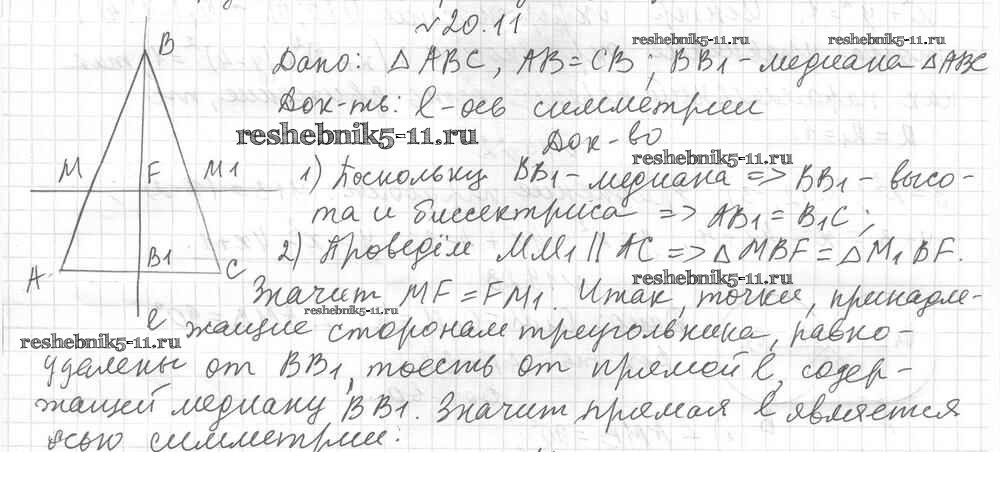 №20.11
reshebnik5-11.ru
reshebnik5-11.ru
Дано: △ABC, AB=CB; BB1-медиана △ABC
Док-ть: l-ось симметрии
reshebnik5-11.ru
Док-во
reshebnik5-11.ru
1) Поскольку BB1-медиана => BB1-высо-
та и биссектриса => AB1=B1C;
2) Проведём MM1 || AC => △MBF=△M1BF.
reshebnik5-11.ru
Значит MF=FM1. Итак, точки, принадле-
reshebnik5-11.ru
жащие сторонам треугольника, равно-
reshebnik5-11.ru
удалены от BB1, тоесть от прямой l, содер-
жащей медиану BB1. Значит, прямая l является
осью симметрии.
B
M F M1
A B1 C
l